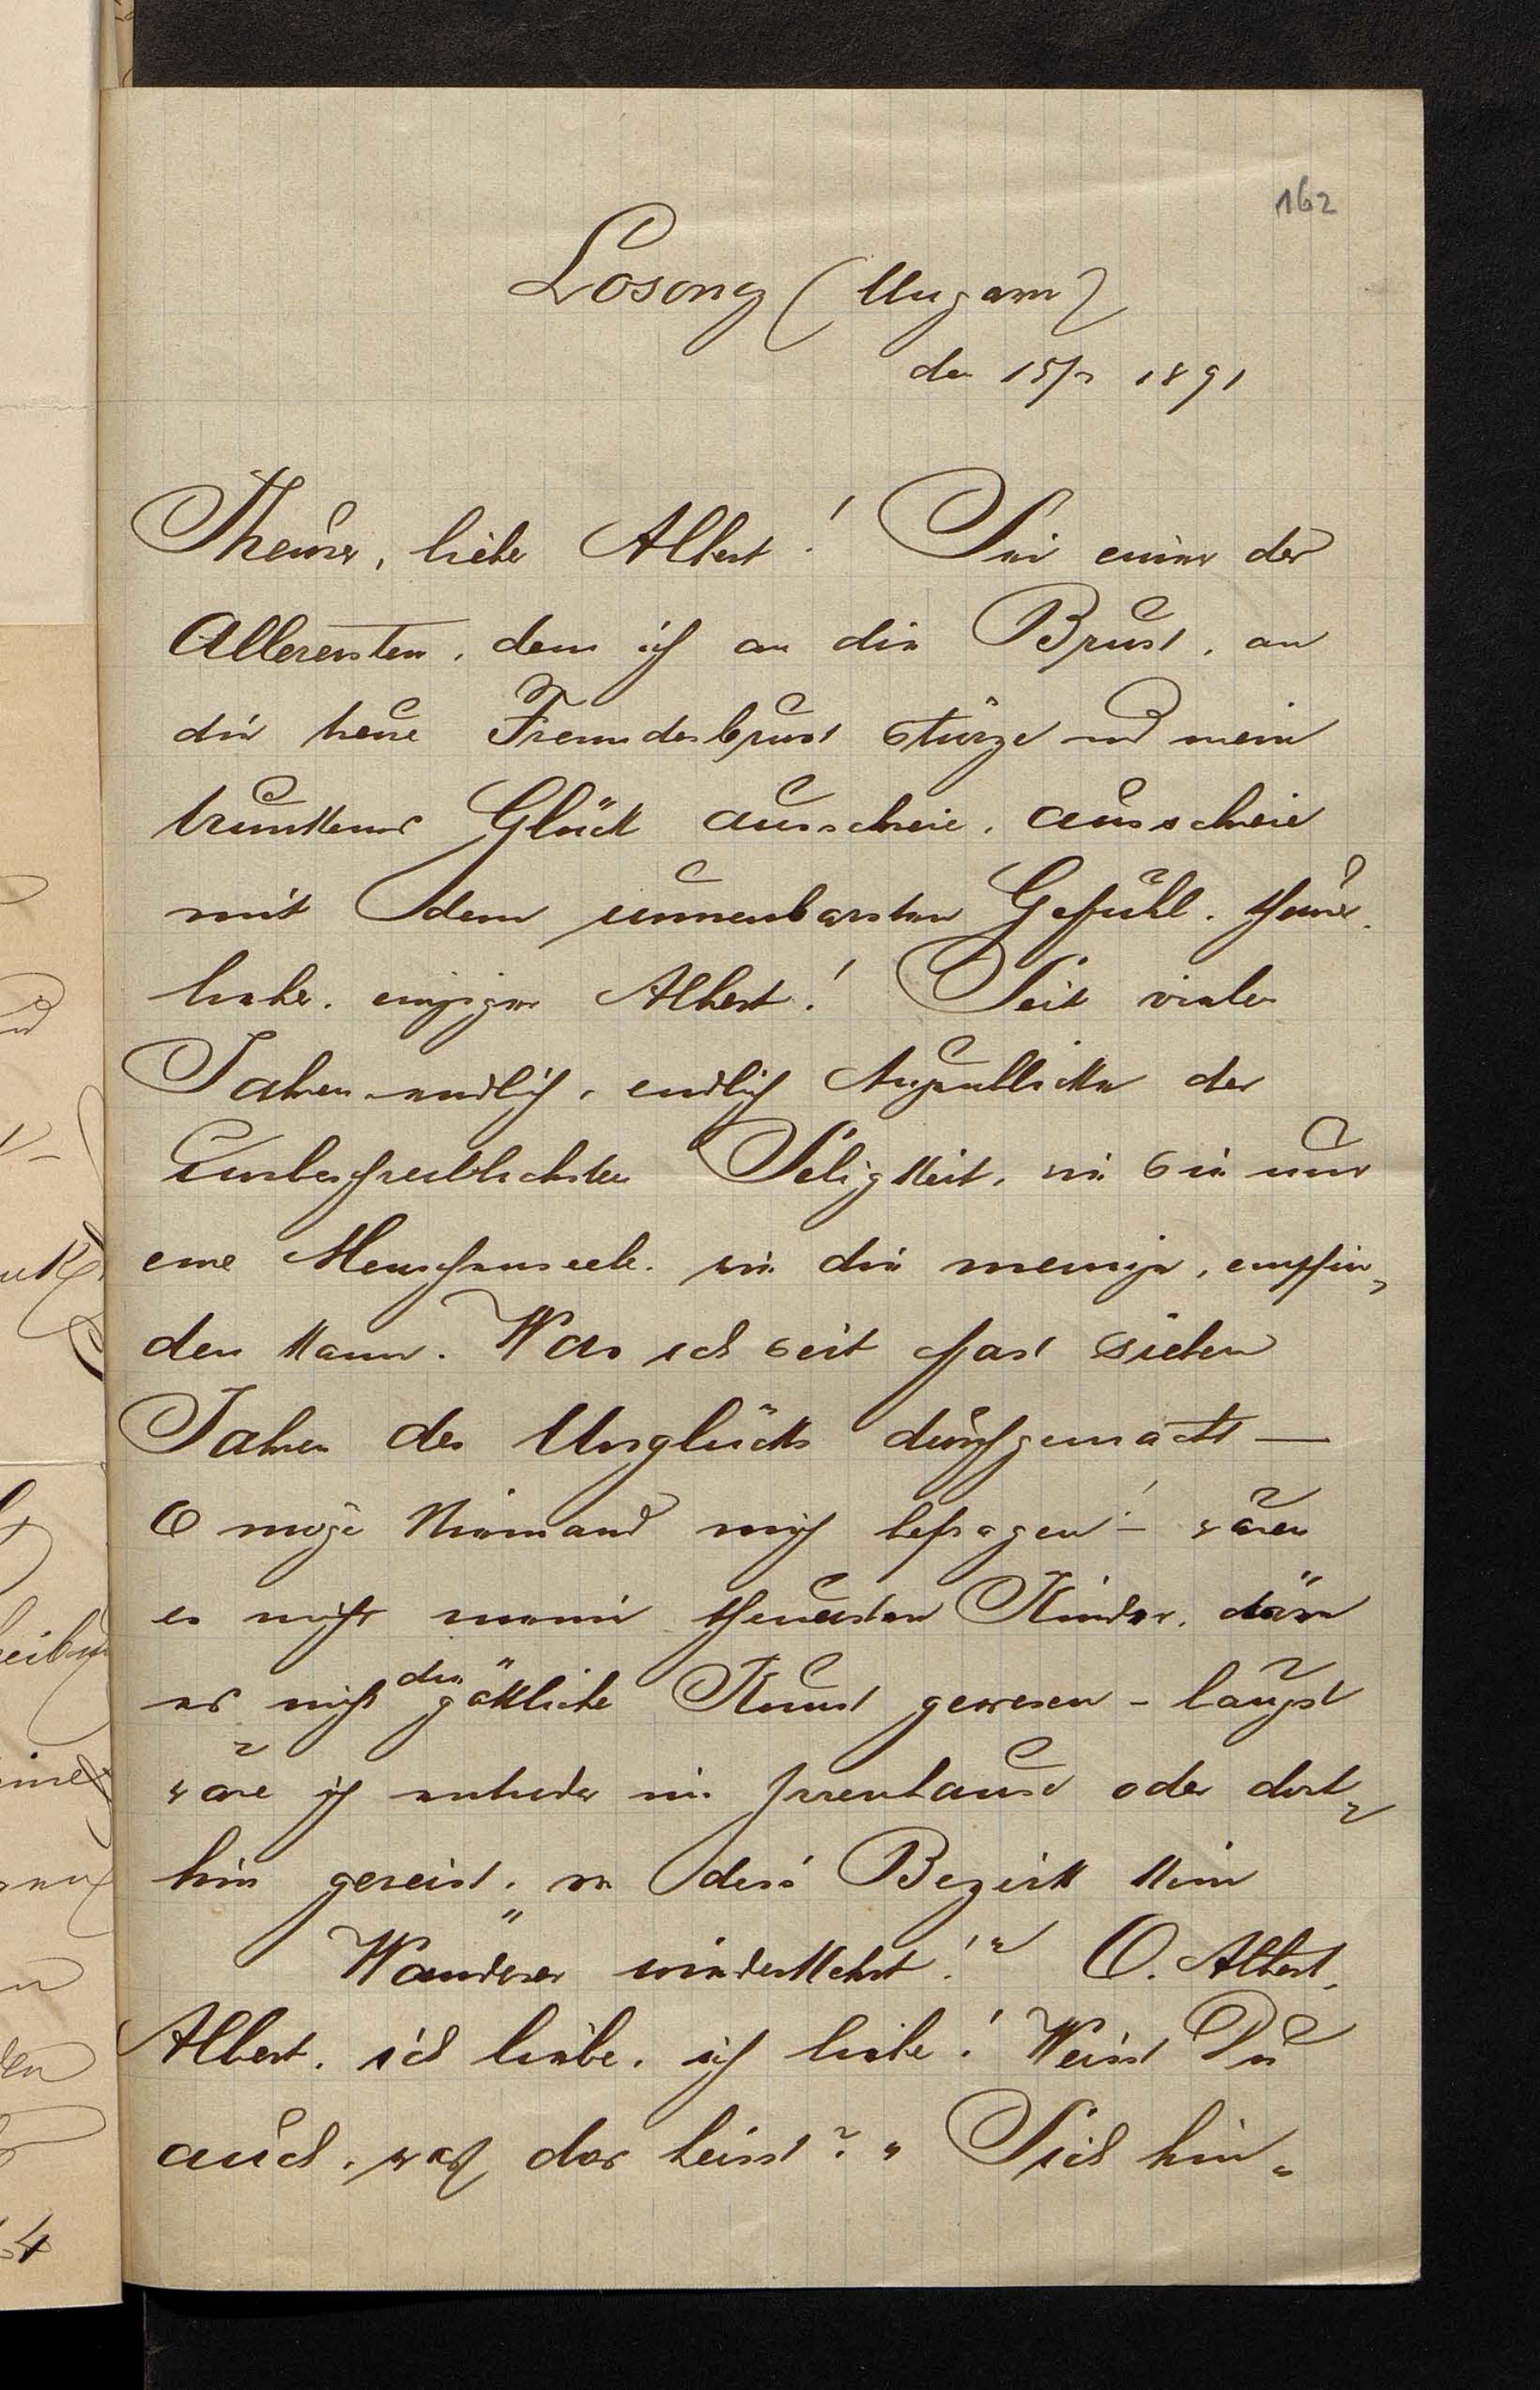 162
Losoncz (Ungarn)
den 15/2 1891
Theurer, lieber Albert! Sei einer der
Allerersten, dem ich an die Brust, an
die treue Freundesbrust stürze und mein
trunkenes Glück ausschreie, ausschreie
mit dem unnenbarsten Gefühl. theurer,
lieber, einziger Albert! Seit vielen
Jahren endlich, endlich Augenblicke der
unbeschreiblichsten Seligkeit, wie sie nur
eine Menschenseele, wie die meinige, empfin-
den kann. Was ich seit fast sieben
Jahren des Unglücks durchgemacht —
O möge Niemand mich befragen! — wären
es nicht meine theuersten Kinder,
es nicht die göttliche Kunst gewesen – längst
wäre ich entweder im Irrenhause oder dort-
hin gereist, wo dess' Bezirk kein
Wanderer wiederkehrt!" O, Albert,
Albert, ich liebe, ich liebe! Weisst Du
auch, was das heisst? " Sich hin-